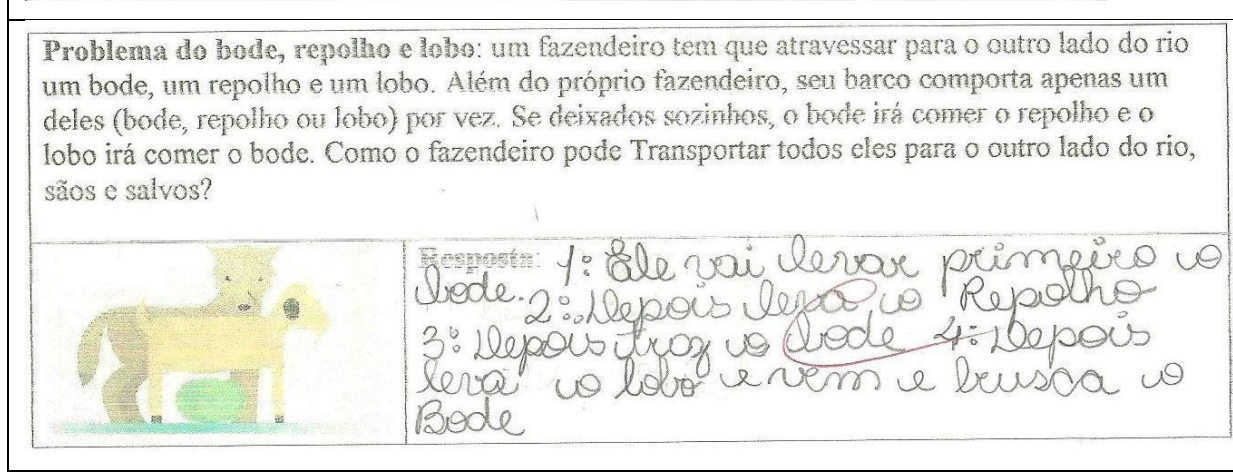 Problema do bode, repolho e lobo: um fazendeiro tem que atravessar para o outro lado do rio
um bode, um repolho e um lobo. Além do próprio fazendeiro, seu barco comporta apenas um
deles (bode, repolho ou lobo) por vez. Se deixados sozinhos, o bode irá comer o repolho e o
lobo irá comer o bode. Como o fazendeiro pode Transportar todos eles para o outro lado do rio,
sãos e salvos?
Resposta: 1: Ele vai levar primeiro o
bode. 2: Depois leva o Repolho
3: Depois traz o bode 4: Depois
leva o lobo e vem e busca o
Bode